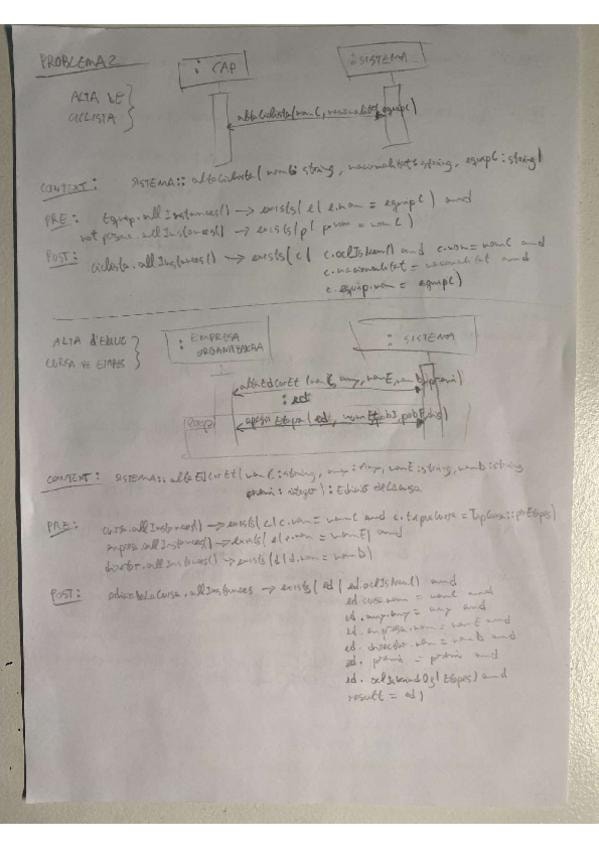 PROBLEMA 2
: CAP
: SISTEMA
ALTA DE
CICLISTA
altaCiclista(nomC, nacionalitat, equipC)
CONTEXT: SISTEMA:: altaCiclista( nomC: string, nacionalitat: string, equipC: string)
PRE: Equip.allInstances() -> exists( e | e.nom = equipC ) and
not .allInstances() -> exists( p | p.nom = nomC )
POST: ciclista.allInstances() -> exists( c | c.oclIsNew() and c.nom = nomC and
c.nacionalitat = nacionalitat and
c.equip.nom = equipC)
ALTA d'EDICIÓ
CURSA DE ETAPES
: EMPRESA
ORGANITZADORA
: SISTEMA
altaEdCurEt (nomC, any, nomE, nomD, premi)
: ed
Loop
Etapa( ed,
CONTEXT: SISTEMA:: altaEdCurEt( nomC: string, any: , nomE: string, nomD: string
premi: integer ) : EdicióDeLaCursa
PRE: cursa.allInstances() -> exists( c | c.nom = nomC and c.tipusCursa = TipCursa::perEtapes)
empresa.allInstances() -> exists( e | e.nom = nomE) and
director.allInstances() -> exists( d | d.nom = nomD)
POST: edicioDeLaCursa.allInstances -> exists( ed | ed.oclIsNew() and
ed.cursa.nom = nomC and
ed.any.any = any and
ed.empresa.nom = nomE and
ed.director.nom = nomD and
ed.premi = premi and
ed.oclIsKindOf( Etapes) and
result = ed)